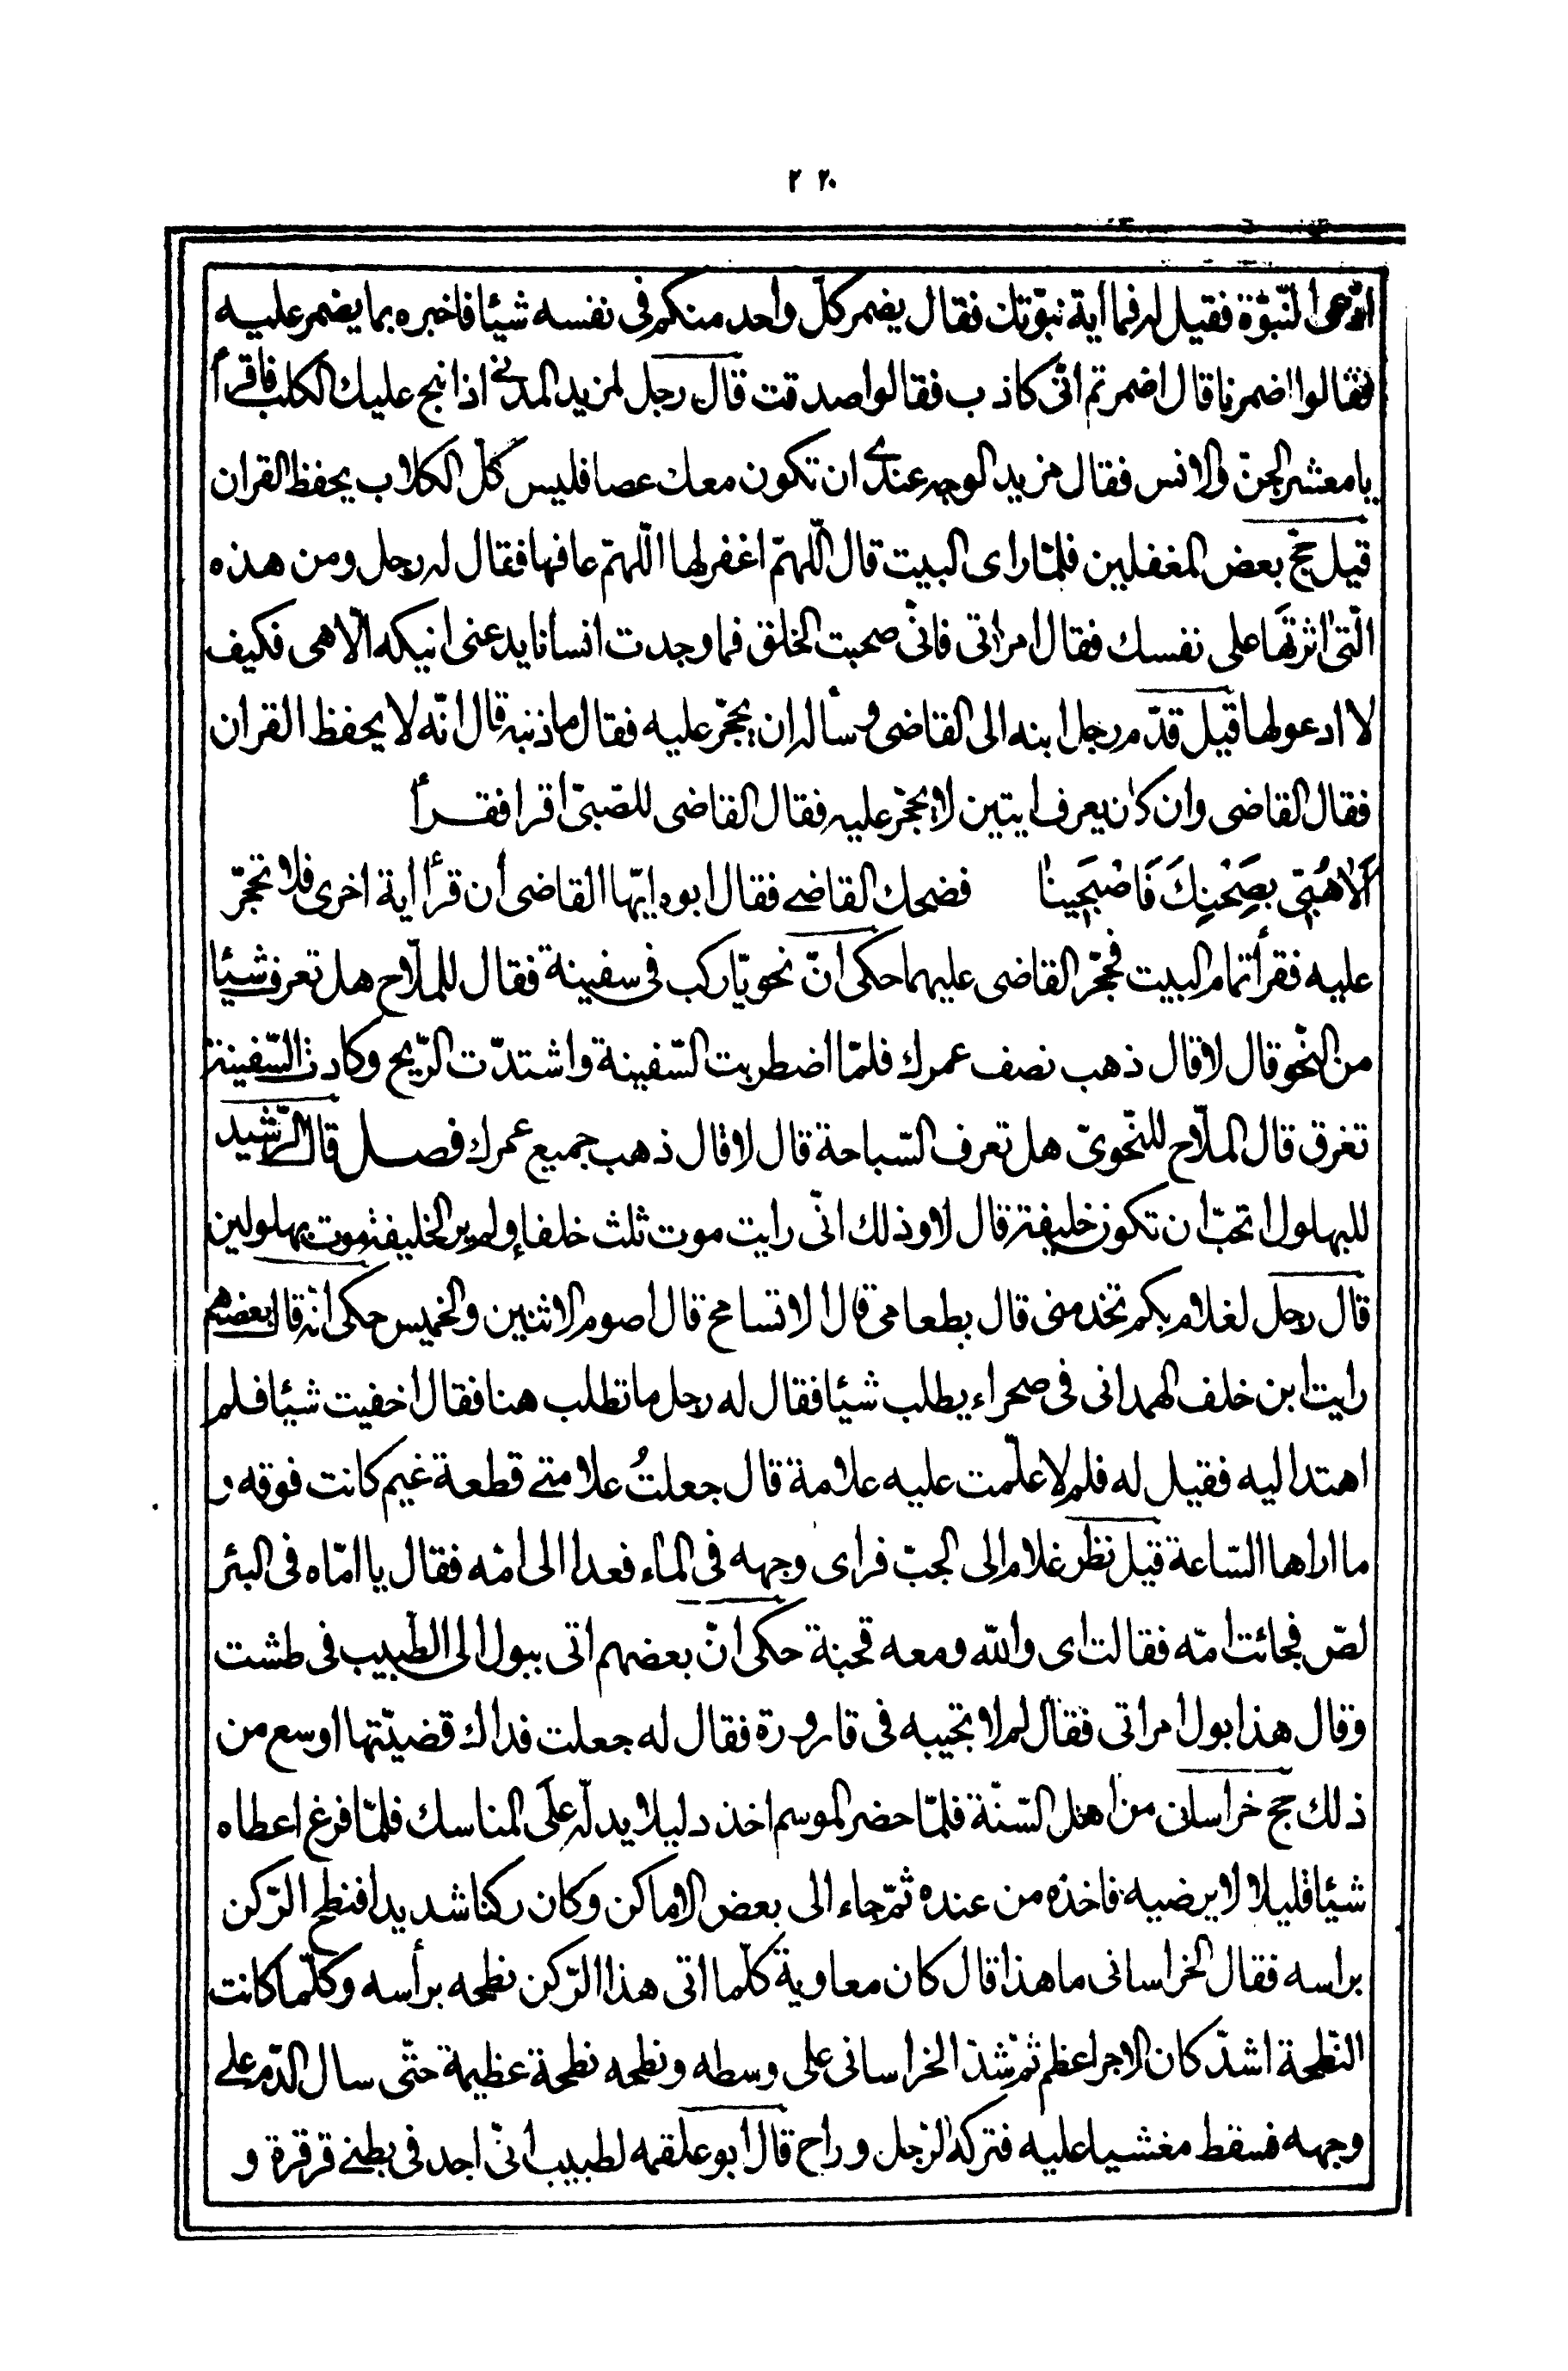 ٢٢٠
ادّعى النّبوّة فقيل له فما اية نبوّتك فقال يضمر كلّ واحد منكم فى نفسه شيئا فاخبره بما يضمر عليه
فقالوا اضمرنا قال اضمرتم انّى كاذب فقالوا صدقت قال رجل لمزيد المدنے اذا نبح عليك الكلب فاقرأ
يا معشر الجنّ والانس فقال مزيد الوجه عندے ان تكون معك عصا فليس كلّ الكلاب يحفظ القران
قيل حجّ بعض المغفلين فلمّا راى البيت قال اللّهمّ اغفر لها اللّهمّ عافها فقال له رجل ومن هذه
الّتى اثرتَها على نفسك فقال امراتى فانّى صحبت الخلق فما وجدت انسانا يدعنى انيكه الّا هى فكيف
لا ادعو لها قيل قدّم رجل ابنه الى القاضى وسأله ان يحجّر عليه فقال ما ذنبه قال انّه لا يحفظ القران
فقال القاضى وان كان يعرف ايتين لا يحجّر عليه فقال القاضى للصّبىّ اقرا فقـــرأ
اَلاٰ هُبّى بِصَحْنِكَ فَاصْبَحينا فضحك القاضے فقال ابوه ايّها القاضى أن قرأ اية اخرى فلا تحجّر
عليه فقرأ تمام البيت فحجّر القاضى عليهما حكى انّ نحويّا ركب فى سفينة فقال للملّاح هل تعرف شيئا
من النّحو قال لا قال ذهب نصف عمرك فلمّا اضطربت السّفينة واشتدّت الرّيح وكادت السّفينة
تغرق قال الملّاح للنّحوىّ هل تعرف السّباحة قال لا قال ذهب جميع عمرك فصـــل قال الرّشيد
للبهلول اتحبّ ان تكون خليفة قال لا وذلك انّى رايت موت ثلث خلفاء ولم ير الخليفة موت بهلولين
قال رجل لغلام بكم تخدمنى قال بطعامى قال الا تسامح قال اصوم الاثنين والخميس حكى انّه قال بعضهم
رايت ابن خلف الهمدانى فى صحراء يطلب شيئا فقال له رجل ما تطلب هنا فقال اخفيت شيئا فلم
اهتد اليه فقيل له فلم لا علّمت عليه علامة قال جعلتُ علامتے قطعة غيم كانت فوقه و
ما اراها السّاعة قيل نظر غلام الى الجبّ فراى وجهه فى الماء فعدا الى امّه فقال يا امّاه فى البئر
لصّ فجائت امّه فقالت اى واللّه ومعه قحبة حكى انّ بعضهم اتى ببول الى الطّبيب فى طشت
وقال هذا بول امراتى فقال لم لا تجيبه فى قارورة فقال له جعلت فداك قضيّتها اوسع من
ذلك حج خراسانى من اهل السّنّة فلمّا حضر الموسم اخذ دليلا يدلّه علَى المناسك فلمّا فرغ اعطاه
شيئا قليلا لا يرضيه فاخذه من عنده ثمّ جاء الى بعض الاماكن وكان ركنا شديدا فنطح الرّكن
براسه فقال الخراسانى ما هذا قال كان معاوية كلّما اتى هذا الرّكن نطحه برأسه وكلّما كانت
النّطحة اشدّ كان الاجر اعظم ثمّ شدّ الخراسانى على وسطه ونطحه نطحة عظيمة حتّى سال الدّم علے
وجهه فسقط مغشيا عليه فتركه الرّجل وراح قال ابو علقمه لطبيب انّى اجد فى بطنے قرقرة و